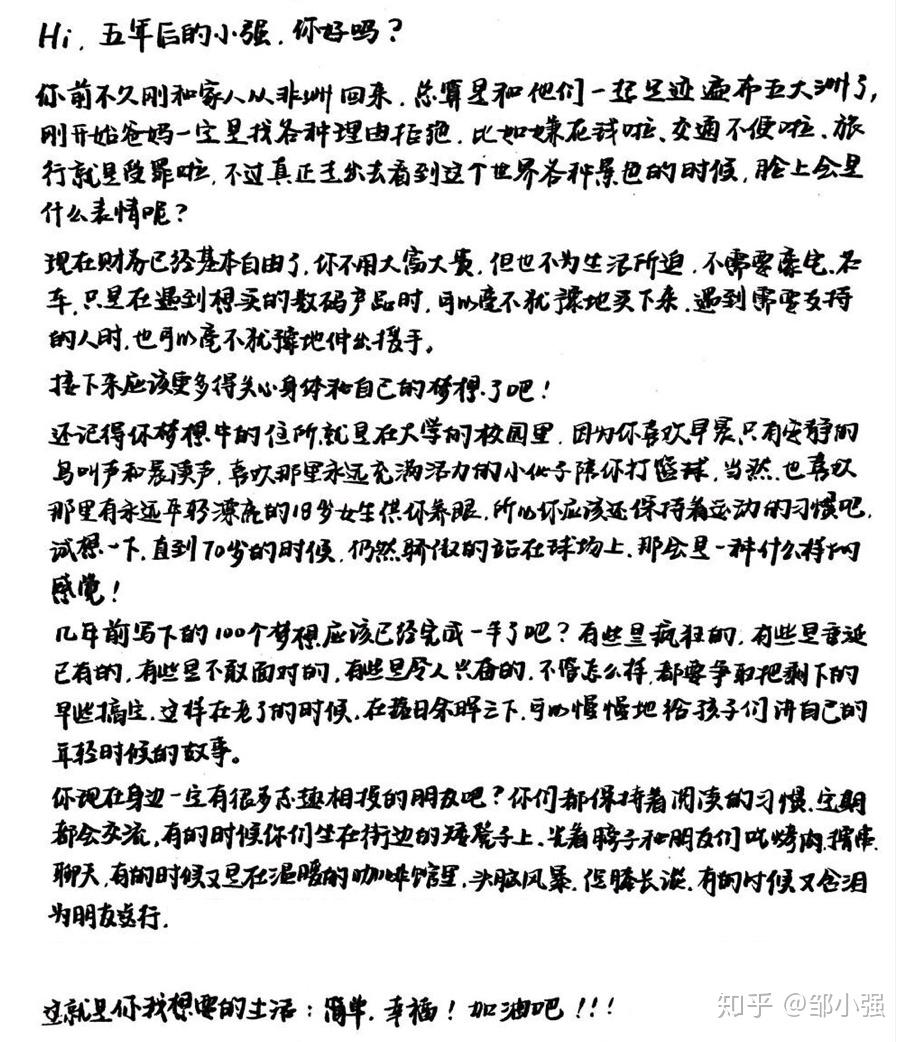 Hi，五年后的小强，你好吗？
你前不久刚和家人从非洲回来，总算是和他们一起足迹遍布五大洲了，
刚开始爸妈一定是找各种理由拒绝，比如嫌花钱啦、交通不便啦、旅
行就是受罪啦，不过真正走出去看到这个世界各种景色的时候，脸上会是
什么表情呢？
现在财务已经基本自由了，你不用大富大贵，但也不为生活所迫，不需要豪宅、名
车，只是在遇到想买的数码产品时，可以毫不犹豫地买下来，遇到需要支持
的人时，也可以毫不犹豫地伸出援手。
接下来应该更多得关心身体和自己的梦想了吧！
还记得你梦想中的住所就是在大学的校园里，因为你喜欢早晨只有安静的
鸟叫声和晨读声，喜欢那里永远充满活力的小伙子陪你打篮球，当然，也喜欢
那里有永远年轻漂亮的18岁女生供你养眼，所以你应该还保持着运动的习惯吧，
试想一下，直到70岁的时候，仍然骄傲的站在球场上，那会是一种什么样的
感觉！
几年前写下的100个梦想应该已经完成一半了吧？有些是疯狂的，有些是垂涎
已有的，有些是不敢面对的，有些是令人兴奋的，不管怎么样，都要争取把剩下的
早些搞定，这样在老了的时候，在落日余晖之下，可以慢慢地给孩子们讲自己的
年轻时候的故事。
你现在身边一定有很多志趣相投的朋友吧？你们都保持着阅读的习惯，定期
都会交流，有的时候你们坐在街边的矮凳子上，光着膀子和朋友们吃烤肉、撸串、
聊天，有的时候又是在温暖的咖啡馆里，头脑风暴，促膝长谈，有的时候又含泪
为朋友送行.
这就是你我想要的生活：简单，幸福！加油吧！！！
知乎 @邹小强